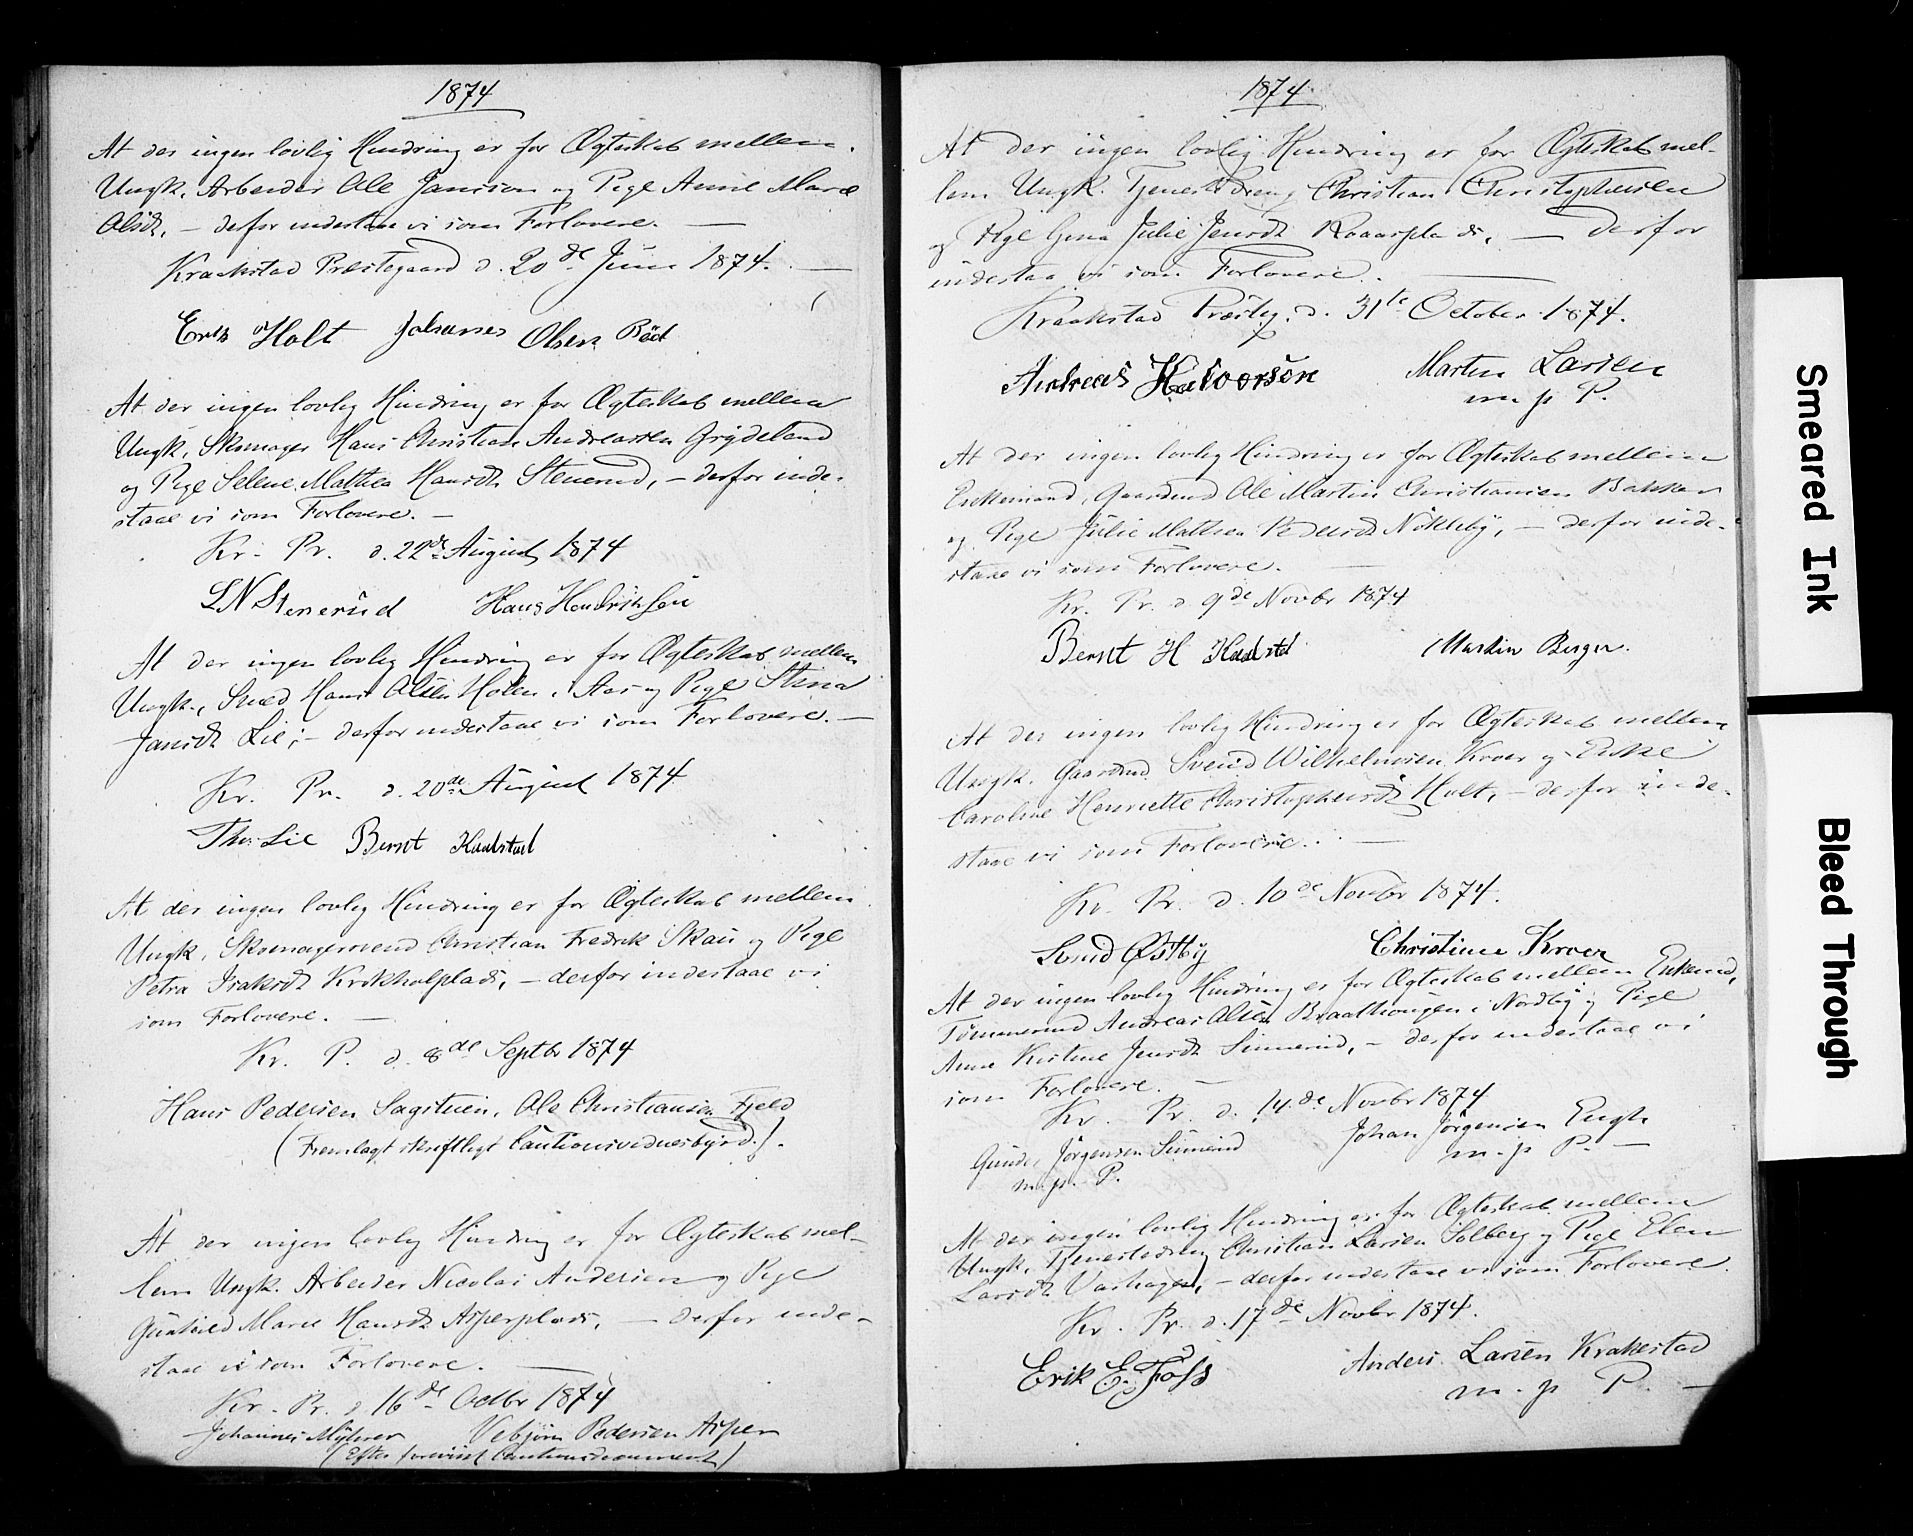 1874
At der ingen lovlig Hindring er for Ægteskab mellem
Ungk. Arbeider Ole Jansson og Pige Anne Marie
Olsdt, – derfor indestaae vi som Forlovere. —
Kraakstad Præstegaard d. 20de Juni 1874. —
Erik Holt Johanes Olsen Böd
At der ingen lovlig Hindring er for Ægteskab mellem
Ungk. Skomager Hans Christian Andreassen Grydeland
og Pige Selene Mathea Hansdt Stenerud, – derfor inde-
staae vi som Forlovere. —
Kr. Pr. d. 22de August 1874
L N Stenerud Hans Hendriksen
At der ingen lovlig Hindring er for Ægteskab mellem
Ungk., Smed Hans Olsen Holen i Aas og Pige Stina
Jansdt Lie; – derfor indestaae vi som Forlovere. —
Kr. Pr. d. 20de August 1874
Thr. Lie Bernt Kaalstad
At der ingen lovlig Hindring er for Ægteskab mellem
Ungk. Skomagersvend Christian Fredrik Skau og Pige
Petra Isaksdt Krokholplads, – derfor indestaae vi
som Forlovere. —
Kr. P. d. 8de Septbr 1874
Hans Pedersen Sagstuen, Ole Christiansen Fjeld
(Fremlagt skriftligt Cautionsvidnesbyrd.).
At der ingen lovlig Hindring er for Ægteskab mel-
lem Ungk. Arbeider Nicolai Andersen og Pige
Gunhild Marie Hansdt Asperplads, — derfor inde-
staae vi som Forlovere. —
Kr. Pr. d 16de Octbr 1874
Johannes Myhrer Vebjörn Pedersen Asper
(Efter foreviist Cautionsdocument)
1874
At der ingen lovlig Hindring er for Ægteskab mel-
lem Ungk. Tjenestedreng Christian Christophersen
og Pige Gina Julie Jensdt Raaarplads, — derfor
indestaa vi som Forlovere. —
Kraakstad Præsteg. d. 31te October 1874.
Andreas Halvorsen Martin Larsen
m. p P.
At der ingen lovlig Hindring er for Ægteskab mellem
Enkemand, Gaardmd Ole Martin Christiansen Bakker
og Pige Julie Mathea Pedersdt Nökleby, – derfor inde-
staae vi som Forlovere. —
Kr. Pr. d 9de Novbr 1874
Bernt H Kaalstd Martin Berger.
At der ingen lovlig Hindring er for Ægteskab mellem
Ungk. Gaardmd Svend Wilhelmsen Kroer og Enke
Caroline Henriette Christophersdt Holt, – derfor inde-
staae vi som Forlovere. —
Kr. Pr. d. 10de Novbr 1874.
Svend Østby Christian Kroer
At der ingen lovlig Hindring er for Ægteskab mellem Enkemd,
Tömmermd Andreas Olsen Braathougen i Nordby og Pige
Anne Kristine Jensdt Sinnerud, – derfor indestaae vi
som Forlovere. —
Kr. Pr. d. 14.de Novbr 1874
Gunder Jörgensen Sinnerud Johan Jörgensen Engh
m. p. P. m. p P. —
At der ingen lovlig Hindring er for Ægteskab mellem
Ungk. Tjenestedreng Christian Larsen Solberg og Pige Elen
Larsdt Varhagen, – derfor indestaae vi som Forlovere.
Kr. Pr. d. 17de Novbr 1874.
Erik E. Foss Anders Larsen Krakestad
m. p P. —
Smeared Ink
Bleed Through